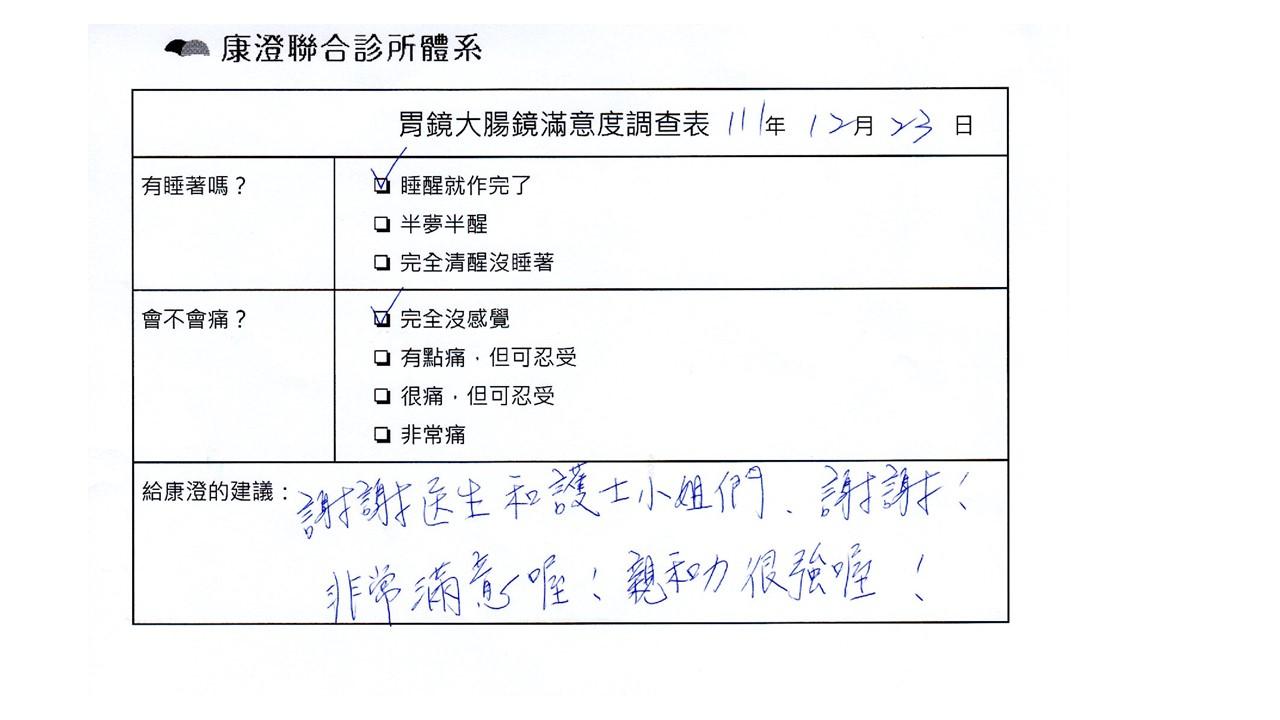 康澄聯合診所體系
胃鏡大腸鏡滿意度調查表 111年 12月 23日
有睡著嗎？
睡醒就作完了
半夢半醒
完全清醒沒睡著
會不會痛？
完全沒感覺
有點痛，但可忍受
很痛，但可忍受
非常痛
給康澄的建議：謝謝医生和護士小姐們、謝謝！
非常滿意喔！親和力很強喔！